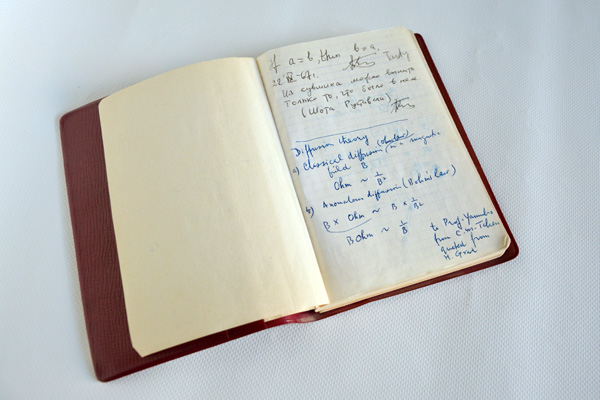 If a = b, then b = a,
Из кувшина можно вылить
только то, что было в нем
(Шота Руставели)
Diffusion theory
a) Classical diffusion, in a magnetic
field B
Ohm ~ 1/B²
b) Anomalous diffusion (Bohm's law)
B × Ohm ~ B × 1/B²
Bohm ~ 1/B
to Prof.
from C. M. Tchen
quoted from
H. Grad